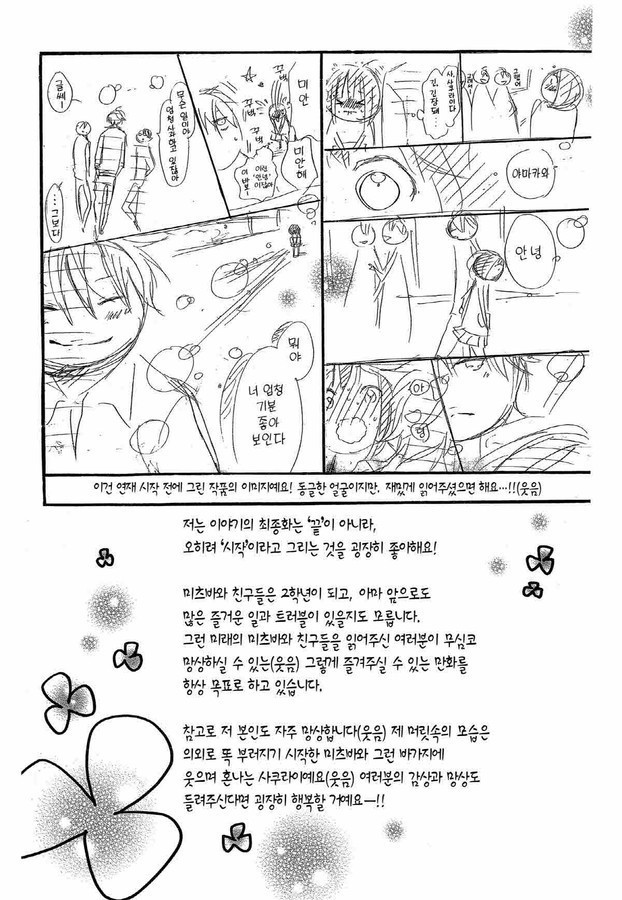 사, 사쿠라이다
긴, 긴장돼…
야마카와
안녕
아
미안
미안해
꾸벅
꾸벅
꾸벅
무슨 일이야
엄청 사과하고 있잖아
글쎄ー
…그보다
뭐야
너 엄청
기분
좋아
보인다
이건 연재 시작 전에 그린 작품의 이미지예요! 동글한 얼굴이지만, 재밌게 읽어주셨으면 해요…!!(웃음)
저는 이야기의 최종화는 '끝'이 아니라,
오히려 '시작'이라고 그리는 것을 굉장히 좋아해요!
미츠바와 친구들은 2학년이 되고, 아마 앞으로도
많은 즐거운 일과 트러블이 있을지도 모릅니다.
그런 미래의 미츠바와 친구들을 읽어주신 여러분이 무심코
망상하실 수 있는(웃음) 그렇게 즐겨주실 수 있는 만화를
항상 목표로 하고 있습니다.
참고로 저 본인도 자주 망상합니다(웃음) 제 머릿속의 모습은
의외로 똑 부러지기 시작한 미츠바와 그런 바가지에
웃으며 혼나는 사쿠라이예요(웃음) 여러분의 감상과 망상도
들려주신다면 굉장히 행복할 거예요ー!!